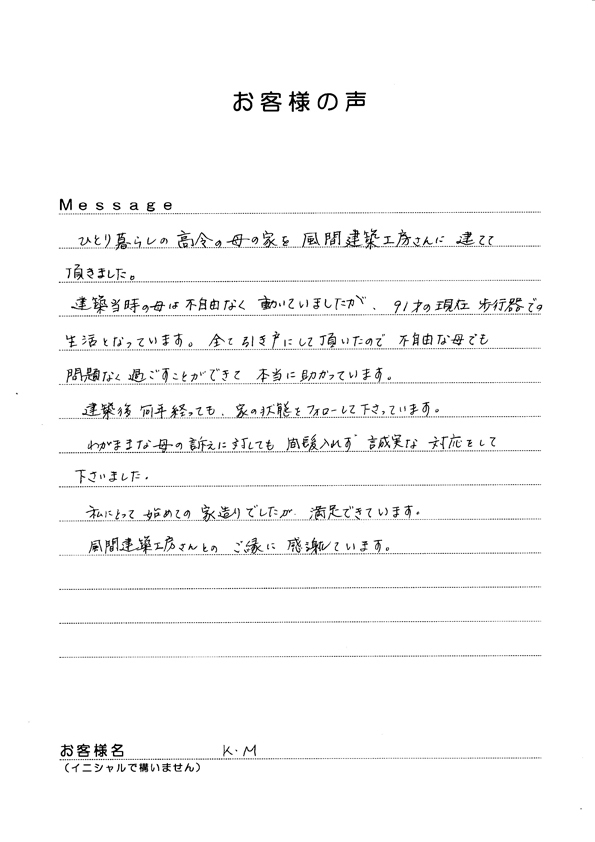 お客様の声
Message
ひとり暮らしの高令の母の家を 風間建築工房さんに 建てて
頂きました。
建築当時の母は不自由なく 動いていましたが、91才の現在 歩行器での
生活となっています。全て引き戸にして頂いたので 不自由な母でも
問題なく過ごすことができて 本当に助かっています。
建築後 何年経っても、家の状態をフォローして下さっています。
わがままな母の訴えに対しても 間髪入れず 誠実な 対応をして
下さいました。
私にとって 始めての 家造りでしたが、満足できています。
風間建築工房さんとの ご縁に 感謝しています。
お客様名 K・M
（イニシャルで構いません）